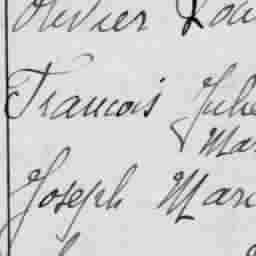 Olivier Lou
Francois Jule
Mar
Joseph Mari